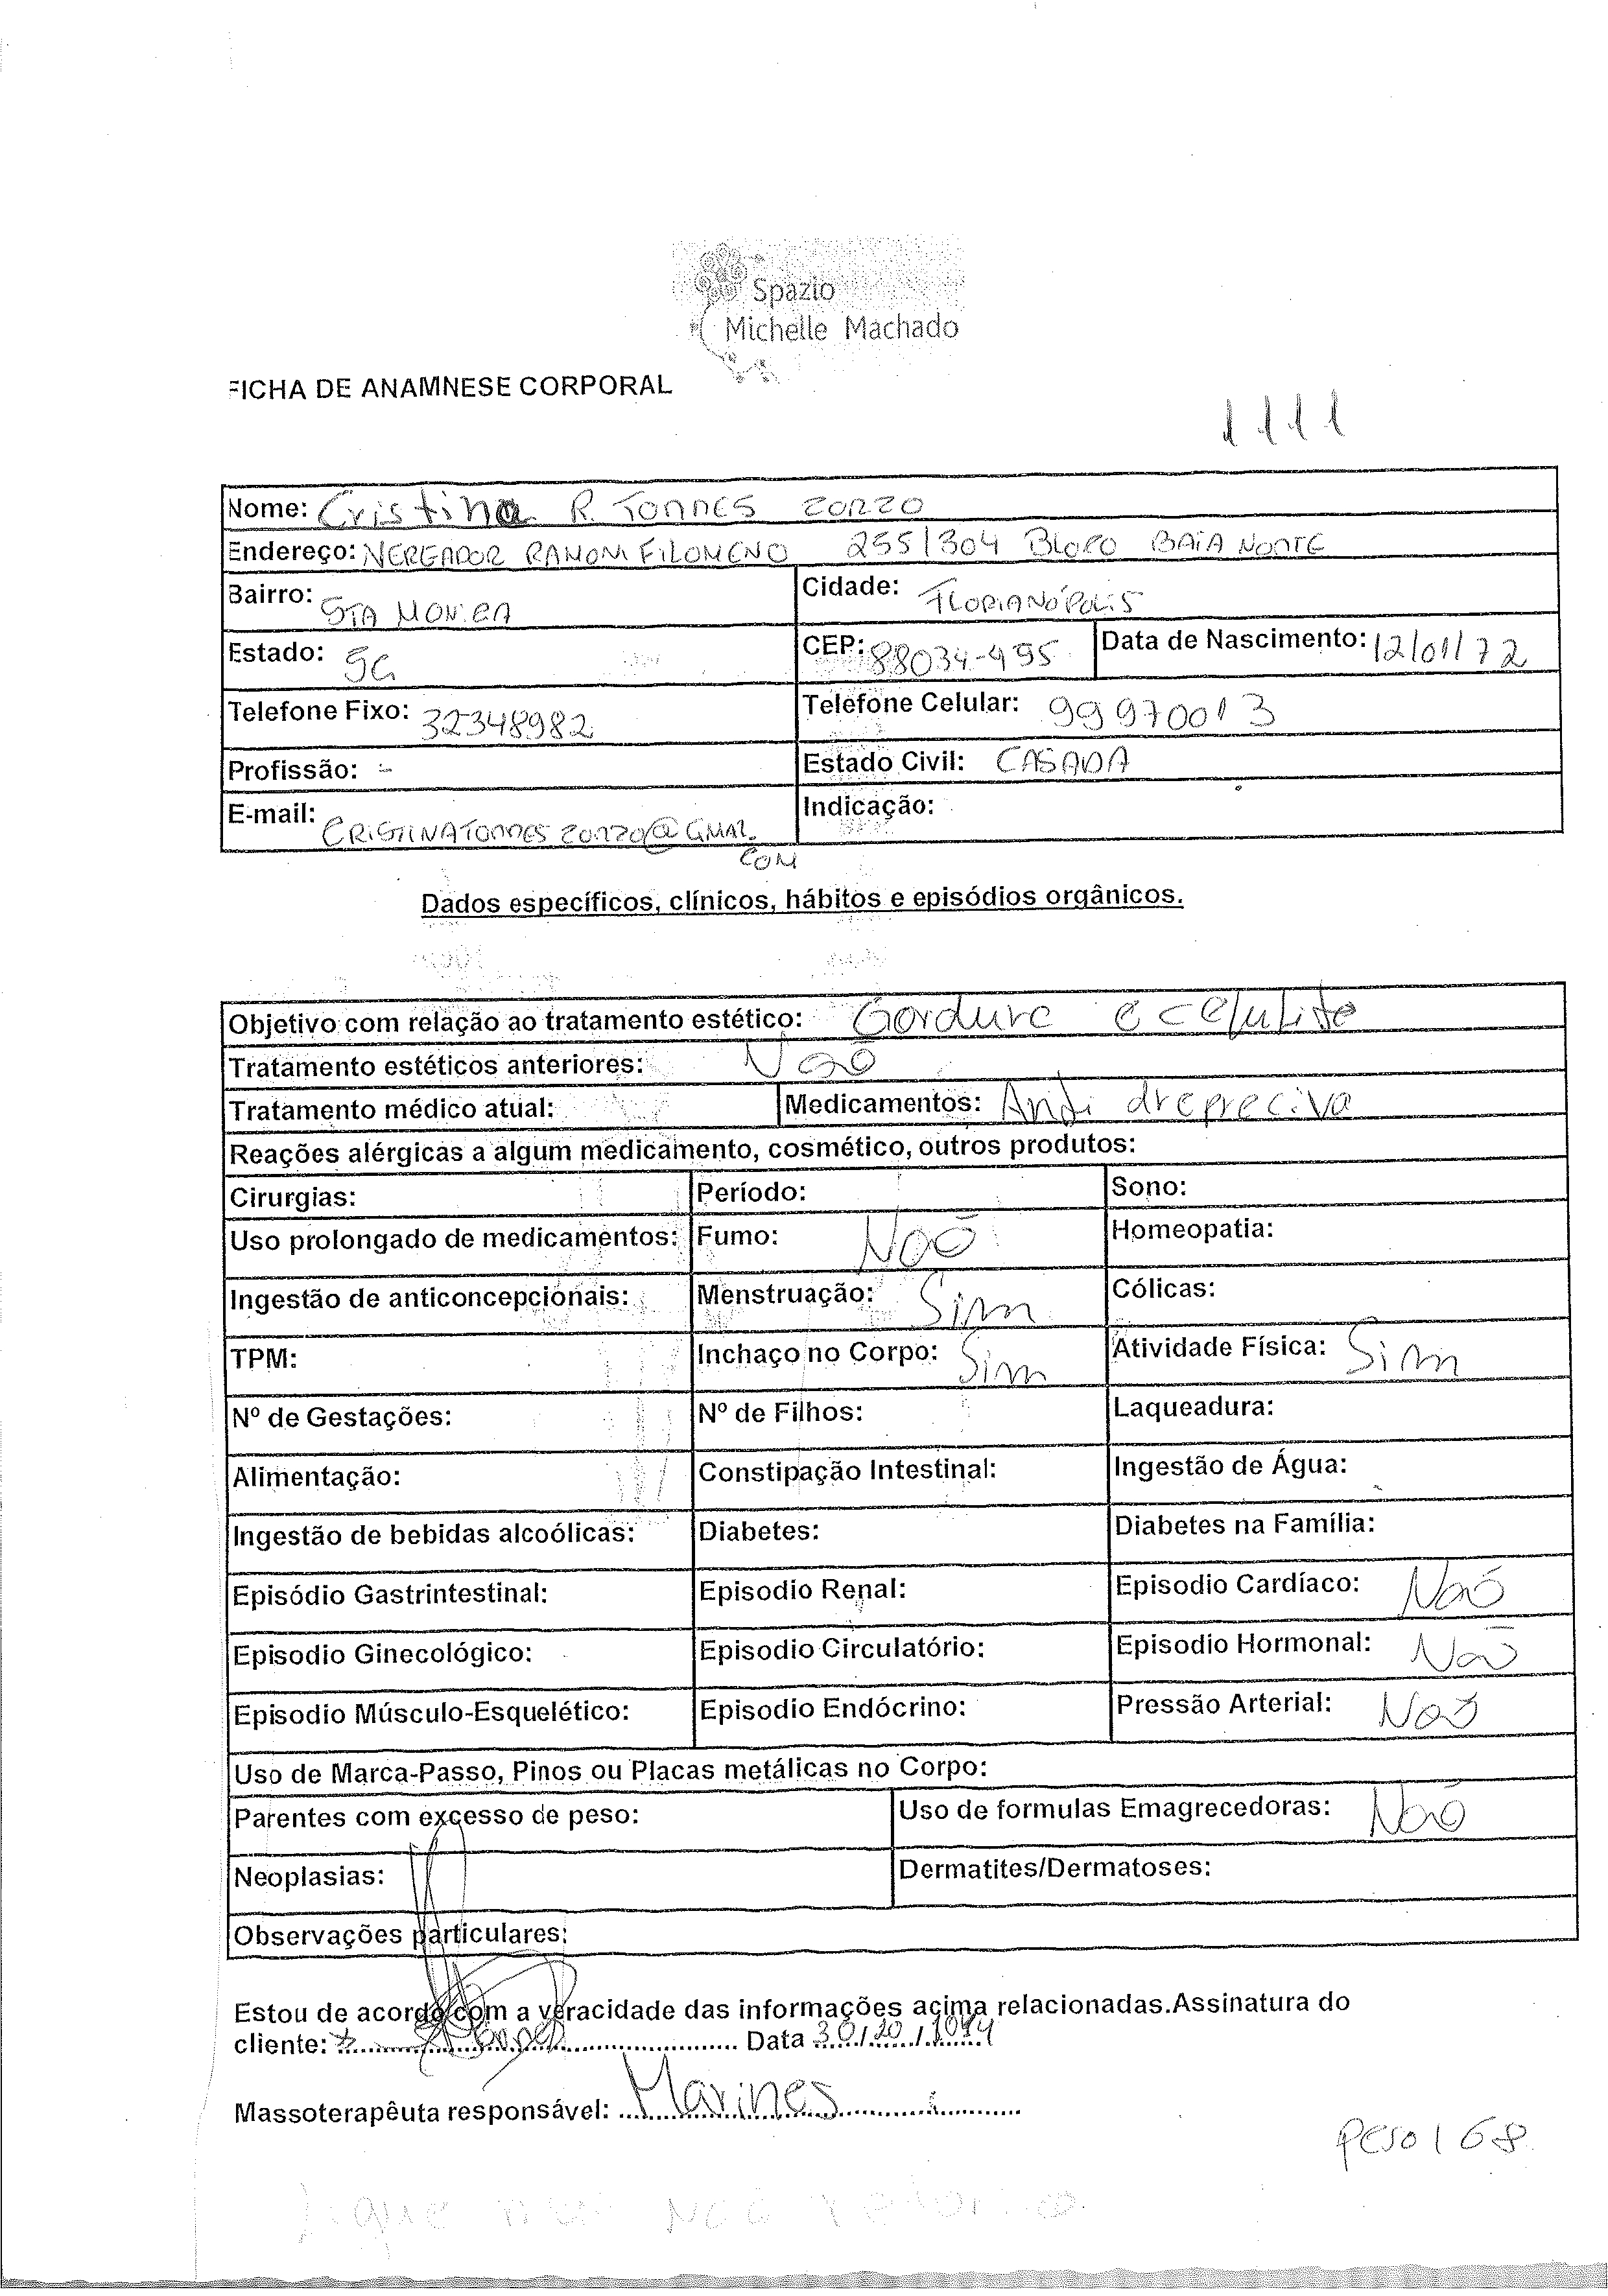 Spazio
Michelle Machado
FICHA DE ANAMNESE CORPORAL
1111
Nome: Cristina R. TORRES ZORZO
Endereço: VEREADOR RAMON FILOMENO 255/304 BLOCO BAIA NORTE
Bairro: STA MONICA Cidade: FLORIANÓPOLIS
Estado: SC CEP: 88034-495 Data de Nascimento: 12/01/72
Telefone Fixo: 32348982 Telefone Celular: 99970013
Profissão: - Estado Civil: CASADA
E-mail: CRISTINATORRESZORZO@GMAIL. Indicação:
COM
Dados específicos, clínicos, hábitos e episódios orgânicos.
Objetivo com relação ao tratamento estético: Gordura e celulite
Tratamento estéticos anteriores: Não
Tratamento médico atual: Medicamentos: Anti drepreciva
Reações alérgicas a algum medicamento, cosmético, outros produtos:
Cirurgias: Período: Sono:
Uso prolongado de medicamentos: Fumo: Não Homeopatia:
Ingestão de anticoncepcionais: Menstruação: Sim Cólicas:
TPM: Inchaço no Corpo: Sim Atividade Física: Sim
Nº de Gestações: Nº de Filhos: Laqueadura:
Alimentação: Constipação Intestinal: Ingestão de Água:
Ingestão de bebidas alcoólicas: Diabetes: Diabetes na Família:
Episódio Gastrintestinal: Episodio Renal: Episodio Cardíaco: Não
Episodio Ginecológico: Episodio Circulatório: Episodio Hormonal: Não
Episodio Músculo-Esquelético: Episodio Endócrino: Pressão Arterial: Não
Uso de Marca-Passo, Pinos ou Placas metálicas no Corpo:
Parentes com excesso de peso: Uso de formulas Emagrecedoras: Não
Neoplasias: Dermatites/Dermatoses:
Observações particulares:
Estou de acordo com a veracidade das informações acima relacionadas.Assinatura do
cliente: Data
Massoterapêuta responsável: Marines
Peso 68